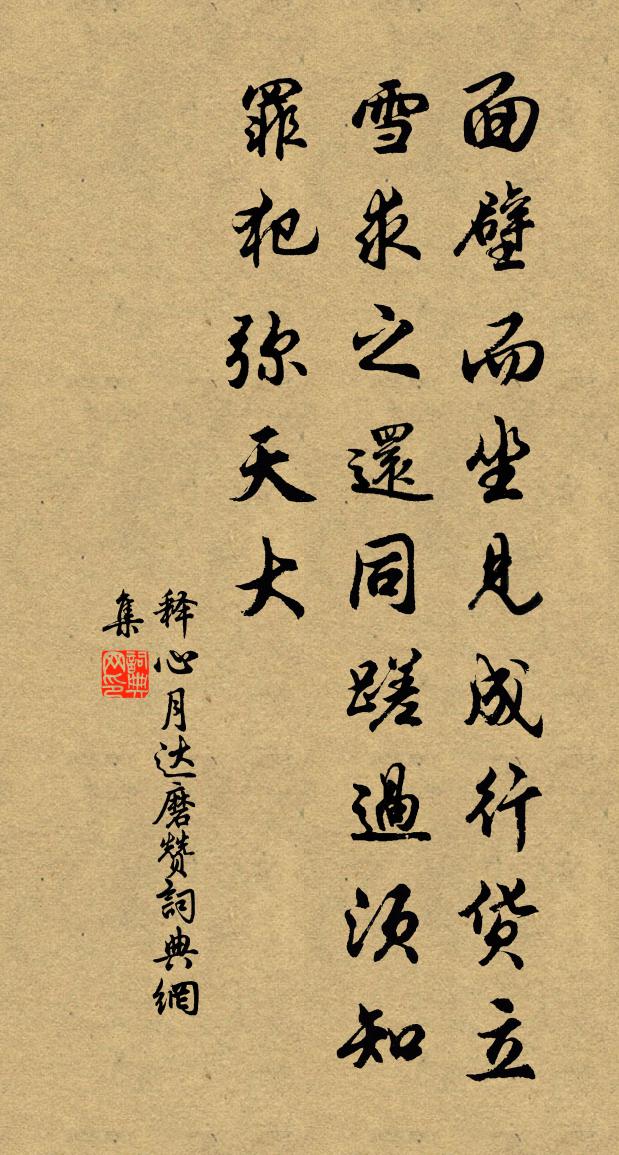 面壁而坐見成行货立
雪求之還同蹉過须知
罪犯弥天大
释心月达磨赞詞典網
集
詞典
网印